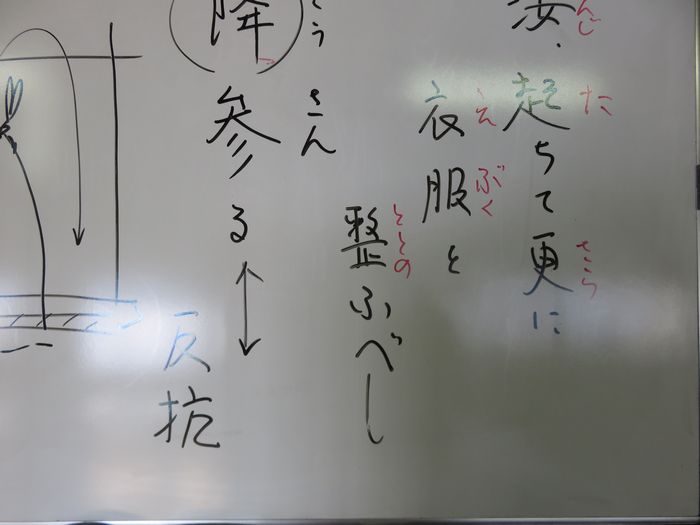 んじ た さら
汝、起ちて更に
え ぶく
衣服を
ととの
整ふべし
こうさん
降参る↔
反抗